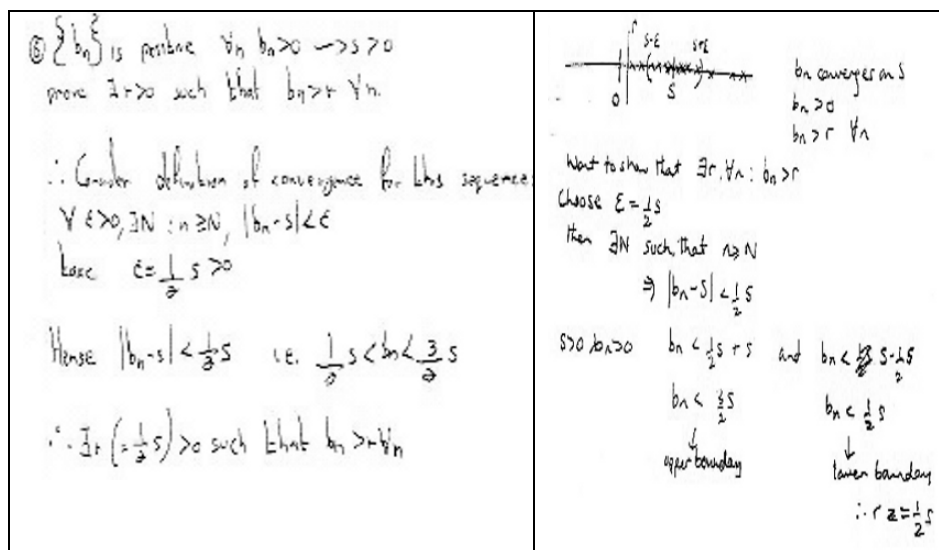 ⑥ {bn} is positive ∀n bn>0 → s>0
prove ∃r>0 such that bn>r ∀n.
∴ Consider definition of convergence for this sequence
∀ ε>0, ∃N : n≥N, |bn-s|<ε
take ε=1/2 s >0
Hense |bn-s| < 1/2 s i.e. 1/2 s < bn < 3/2 s
∴ ∃r (=1/2 s) >0 such that bn >r ∀n
r
s-ε s+ε
0 s
bn converges on s
bn >0
bn >r ∀n
Want to show that ∃r, ∀n : bn >r
Choose ε = 1/2 s
then ∃N such that n≥N
⇒ |bn-s| < 1/2 s
s>0, bn>0 bn < 1/2 s + s and bn < s-1/2 s
bn < 3/2 s bn < 1/2 s
↓ ↓
upper boundary lower boundary
∴ r = 1/2 s